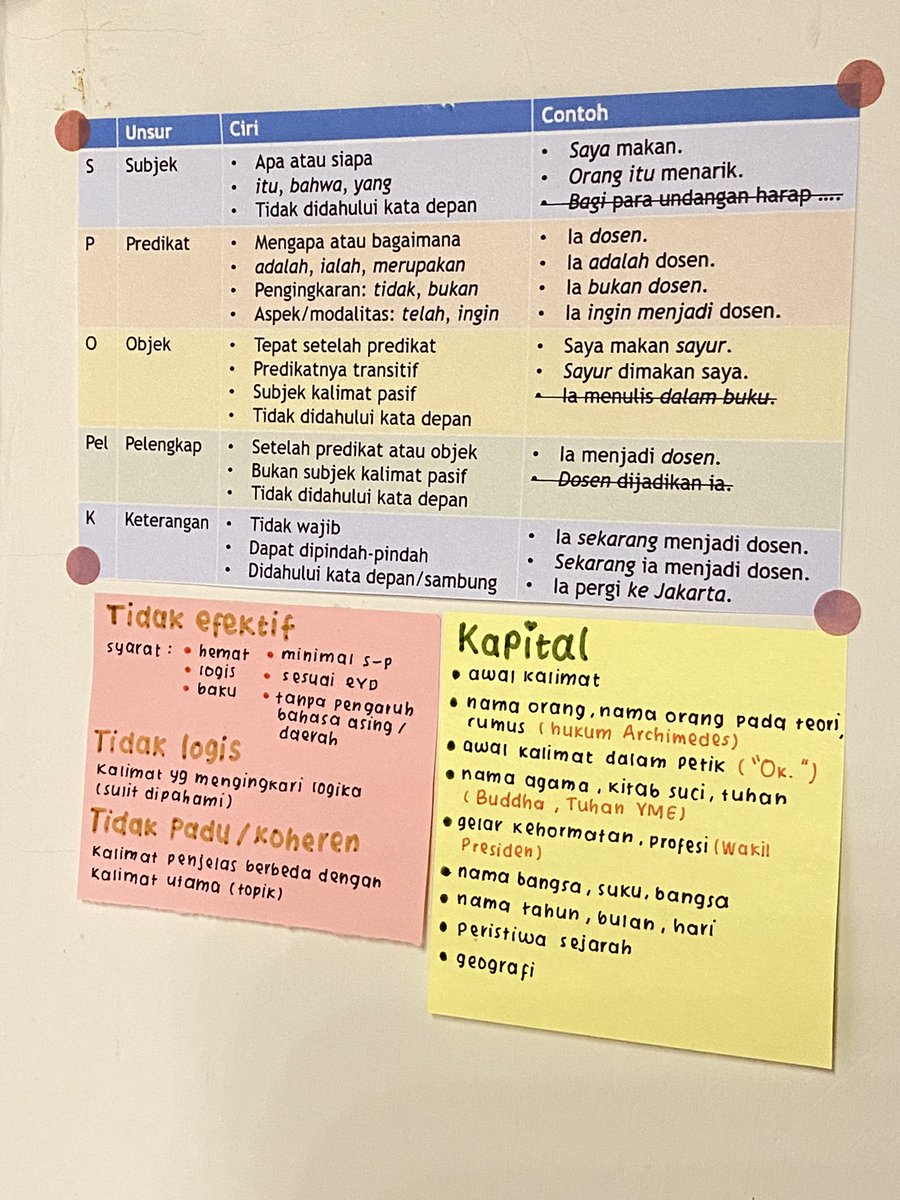 Unsur Ciri Contoh
S Subjek
• Apa atau siapa
• itu, bahwa, yang
• Tidak didahului kata depan
• Saya makan.
• Orang itu menarik.
• Bagi para undangan harap ....
P Predikat
• Mengapa atau bagaimana
• adalah, ialah, merupakan
• Pengingkaran: tidak, bukan
• Aspek/modalitas: telah, ingin
• Ia dosen.
• Ia adalah dosen.
• Ia bukan dosen.
• Ia ingin menjadi dosen.
O Objek
• Tepat setelah predikat
• Predikatnya transitif
• Subjek kalimat pasif
• Tidak didahului kata depan
• Saya makan sayur.
• Sayur dimakan saya.
• Ia menulis dalam buku.
Pel Pelengkap
• Setelah predikat atau objek
• Bukan subjek kalimat pasif
• Tidak didahului kata depan
• Ia menjadi dosen.
• Dosen dijadikan ia.
K Keterangan
• Tidak wajib
• Dapat dipindah-pindah
• Didahului kata depan/sambung
• Ia sekarang menjadi dosen.
• Sekarang ia menjadi dosen.
• Ia pergi ke Jakarta.
Tidak efektif
syarat :
• hemat
• logis
• baku
• minimal s-p
• sesuai EYD
• tanpa pengaruh
bahasa asing /
daerah
Tidak logis
Kalimat yg mengingkari logika
(sulit dipahami)
Tidak Padu / Koheren
Kalimat penjelas berbeda dengan
kalimat utama (topik)
Kapital
• awal kalimat
• nama orang, nama orang pada teori,
rumus (hukum Archimedes)
• awal kalimat dalam petik ("Ok.")
• nama agama, kitab suci, tuhan
(Buddha, Tuhan YME)
• gelar kehormatan, profesi (Wakil
Presiden)
• nama bangsa, suku, bangsa
• nama tahun, bulan, hari
• peristiwa sejarah
• geografi